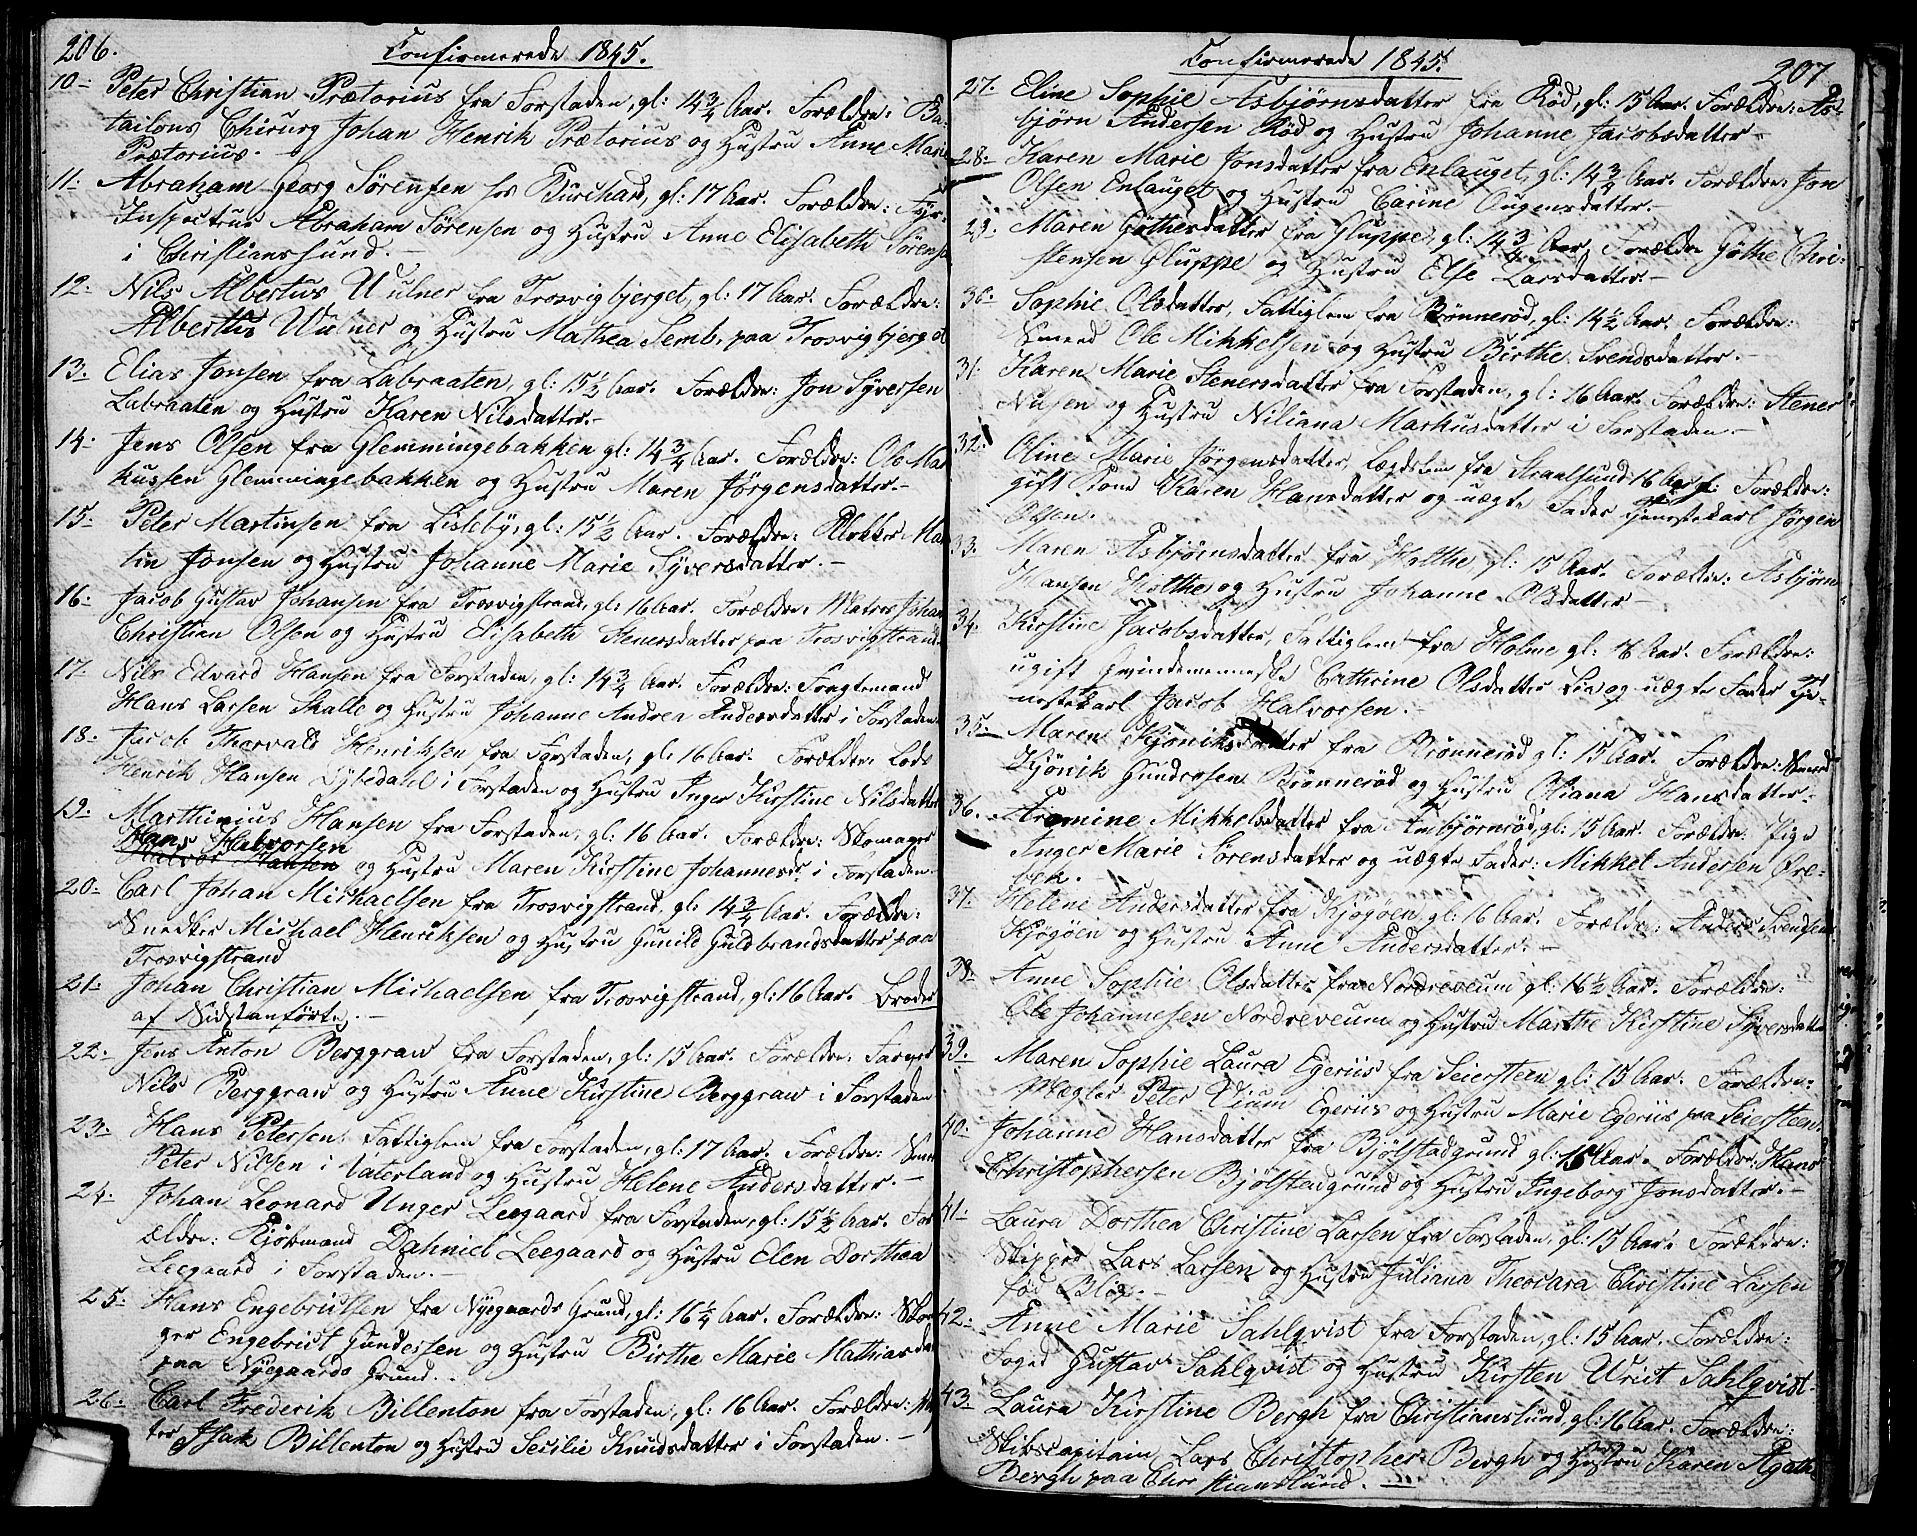 206.
Confirmerede 1845.
10. Peter Christian Prætorius fra Forstaden, gl: 14 3/4 Aar. Forældre: Ba-
tailons Chirurg Johan Henrik Prætorius og Hustru Anne Marie
Prætorius.
11. Abraham Georg Sørensen hos Burchard, gl: 17 Aar. Forældre: Fyr-
Inspecteur Abraham Sørensen og Hustru Anne Elisabeth Sørensen
i Christianssund.
12. Nils Albertus Wulner fra Trosvigbjerget, gl: 17 Aar. Forældre:
Albertus Wulner og Hustru Mathea Semb, paa Trosvigbjerget
13. Elias Jonsen fra Labraaten, gl: 15 1/2 Aar. Forældre: Jon Syversen
Labraaten og Hustru Karen Nilsdatter.
14. Jens Olsen fra Glemmingebakken gl: 14 3/4 Aar. Forældre: Ole Mar
kussen Glemmingebakken og Hustru Maren Jørgensdatter.
15. Peter Martinsen fra Lisleby, gl: 15 1/2 Aar. Forældre: Klokker Mar
tin Jonsen og Hustru Johanne Marie Syversdatter.
16. Jacob Gustav Johansen fra Trosvigstrand, gl: 16 Aar. Forældre: Matros Johan
Christian Olsen og Hustru Elisabeth Stenersdatter paa Trosvigstrand.
17. Nils Edvard Hansen fra Forstaden, gl: 14 3/4 Aar. Forældre: Fragtemand
Hans Larsen Skalle og Hustru Johanne Andrea Andersdatter i Forstaden.
18. Jacob Thorvald Henriksen fra Forstaden, gl: 16 Aar. Forældre: Lods
Henrik Hansen Lysedahl i Forstaden og Hustru Inger Kirstine Nilsdatter
19. Marthinius Hansen fra Forstaden, gl: 16 Aar. Forældre: Skomager
Hans Halvorsen
Halvor Hansen og Hustru Maren Kirstine Johannesd. i Forstaden.
20. Carl Johan Michaelsen fra Trosvigstrand, gl: 14 3/4 Aar. Forældre:
Snedker Michael Henriksen og Hustru Gunild Guldbrandsdatter paa
Trosvigstrand
21. Johan Christian Michaelsen fra Trosvigstrand, gl: 16 Aar. Broder
af Sidstanførte.
22. Jens Anton Berggraw fra Forstaden, gl: 15 Aar. Forældre: Farver
Nils Berggraw og Hustru Anne Kirstine Berggraw i Forstaden
23. Hans Petersen, Fattiglem fra Forstaden, gl: 17 Aar. Forældre:
Peter Nilsen i Vaterland og Hustru Helene Andersdatter.
24. Johan Leonard Unger Leegaard fra Forstaden, gl: 15 1/2 Aar. For
ældre: Kjøbmand Dahniel Leegaard og Hustru Elen Dorthea
Leegaard i Forstaden.
25. Hans Engebridtsen fra Nyegaards Grund, gl: 16 1/4 Aar. Forældre: Skoma
ger Engebridt Gundersen og Hustru Birthe Marie Mathiasdat
paa Nyegaards Grund.
26. Carl Frederik Billenton fra Forstaden, gl: 16 Aar. Forældre:
Isak Billenton og Hustru Secilie Knudsdatter i Forstaden.
Confirmerede 1845.
207
27. Eline Sophie Asbjørnsdatter fra Rød, gl: 15 Aar. Forældre: As-
bjørn Andersen Rød og Hustru Johanne Jacobsdatter.
28. Karen Marie Jonsdatter fra Enlauget, gl: 14 3/4 Aar. Forældre: Jon
Olsen Enlauget og Hustru Carine Ougensdatter.
29. Maren Gøthesdatter fra Gluppe, gl: 14 3/4 Aar, Forældre Gøthe Chri-
stensen Gluppe og Hustru Else Larsdatter.
30. Sophie Olsdatter, Fattiglem fra Rønnerød, gl: 14 1/2 Aar. Forældre:
Smed Ole Mikkelsen og Hustru Birthe Svendsdatter.
31. Karen Marie Stenersdatter fra Forstaden, gl: 16 Aar. Forældre: Stener
og Hustru Niliana Markusdatter i Forstaden.
32. Oline Marie Jørgensdatter, Lægdslem fra Straalsund 16 Aar gl: Forældre:
gift Kone Karen Hansdatter og uægte Fader Tjenestekarl Jørgen
Olsen.
33. Maren Asbjørnsdatter fra Holthe, gl: 15 Aar. Forældre: Asbjørn
Hansen Holthe og Hustru Johanne Olsdatter
34. Kirstine Jacobsdatter, Fattiglem fra Holme gl: 16 Aar. Forældre:
ugift Qvindemenneske Cathrine Olsdatter Lia og uægte Fader Tje-
nestekarl Jacob Halvorsen.
35. Maren Kjøniksdatter fra Rønnerød gl: 15 Aar. Forældre: Smed
Kjønik Gundersen Rønnerød og Hustru Oliana Hansdatter.
36. Andrea Mikkelsdatter fra Ambjørnrød, gl: 15 Aar. Forældre: Pige
Inger Marie Sørensdatter og uægte Fader: Mikkel Andersen Øre-
bæk.
37. Helene Andersdatter fra Kjøgøen, gl: 16 Aar. Forældre: Anders Svendsen
Kjøgøen og Hustru Anne Andersdatter.
38. Anne Sophie Olsdatter fra Nordreveum gl: 16 1/2 Aar. Forældre:
Ole Johannesen Nordreveum og Hustru Marthe Kirstine Syversdatter
39. Maren Sophie Laura Egeriis fra Seiersteen gl: 15 Aar. Forældre:
Mægler Peter Vium Egeriis og Hustru Marie Egeriis paa Seiersteen.
40. Johanne Hansdatter fra Bjølstadgrund gl: 15 Aar. Forældre: Hans
Christophersen Bjølstadgrund og Hustru Ingeborg Jonsdatter.
41. Laura Dorthea Christine Larsen fra Forstaden, gl: 15 Aar. Forældre:
Skipper Lars Larsen og Hustru Juliana Theodara Christine Larsen
fød Blix.
42. Anne Marie Sahlqvist fra Forstaden, gl: 15 Aar. Forældre:
Foged Gustav Sahlqvist og Hustru Kirsten Sahlqvist.
43. Laura Kirstine Bergh fra Christianslund, gl: 16 Aar. Forældre:
Skibscapitain Lars Christopher Bergh og Hustru Karen Agathe
Bergh paa Christianslund.